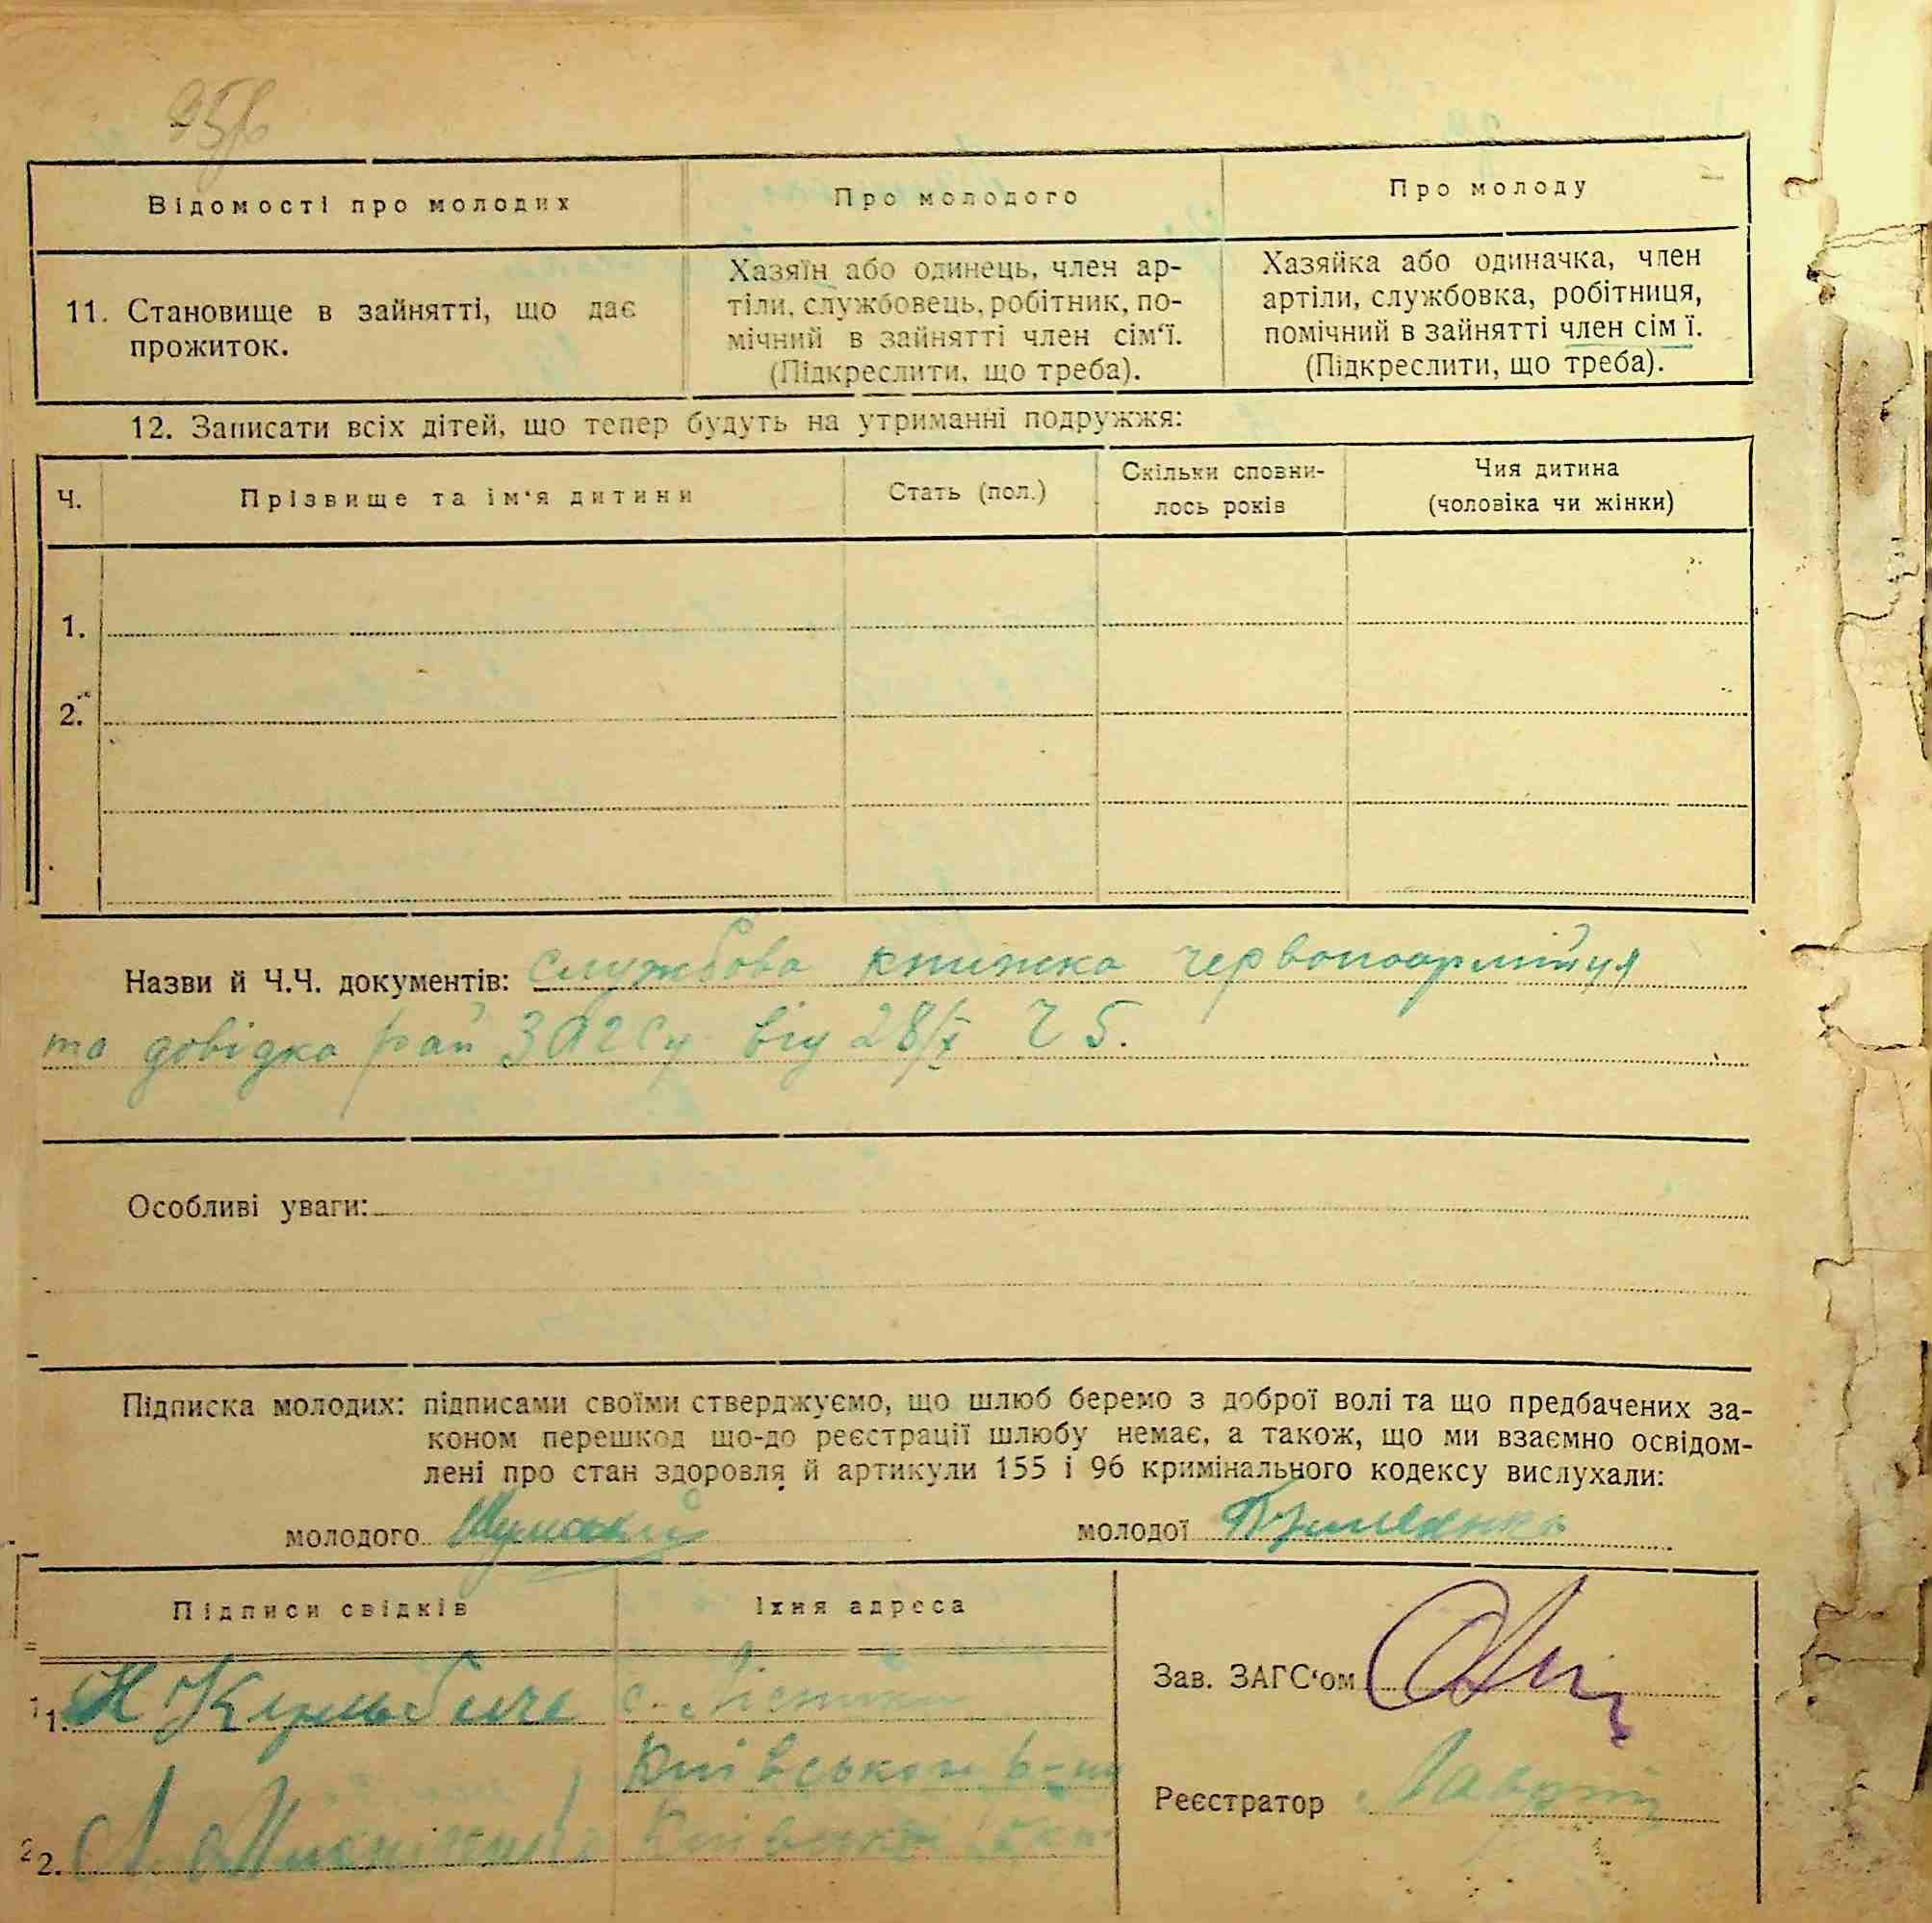 Відомості про молодих
Про молодого
Про молоду
11. Становище в зайнятті, що дає
прожиток.
Хазяїн або одинець, член ар-
тіли, службовець, робітник, по-
мічний в зайнятті член сім'ї.
(Підкреслити, що треба).
Хазяйка або одиначка, член
артіли, службовка, робітниця,
помічний в зайнятті член сім ї.
(Підкреслити, що треба).
12. Записати всіх дітей, що тепер будуть на утриманні подружжя:
Ч.
Прізвище та ім'я дитини
Стать (пол.)
Скільки сповни-
лось років
Чия дитина
(чоловіка чи жінки)
1.
2.
Назви й Ч.Ч. документів: Службова книжка червоноармійця
та довідка рай ЗАГСу від 28/X Ч 5.
Особливі уваги:
Підписка молодих: підписами своїми стверджуємо, що шлюб беремо з доброї волі та що предбачених за-
коном перешкод що-до реєстрації шлюбу немає, а також, що ми взаємно освідом-
лені про стан здоровля й артикули 155 і 96 кримінального кодексу вислухали:
молодого Шумський
молодої
Підписи свідків
Їхня адреса
1.
с.
2.
Зав. ЗАГС'ом
Реєстратор